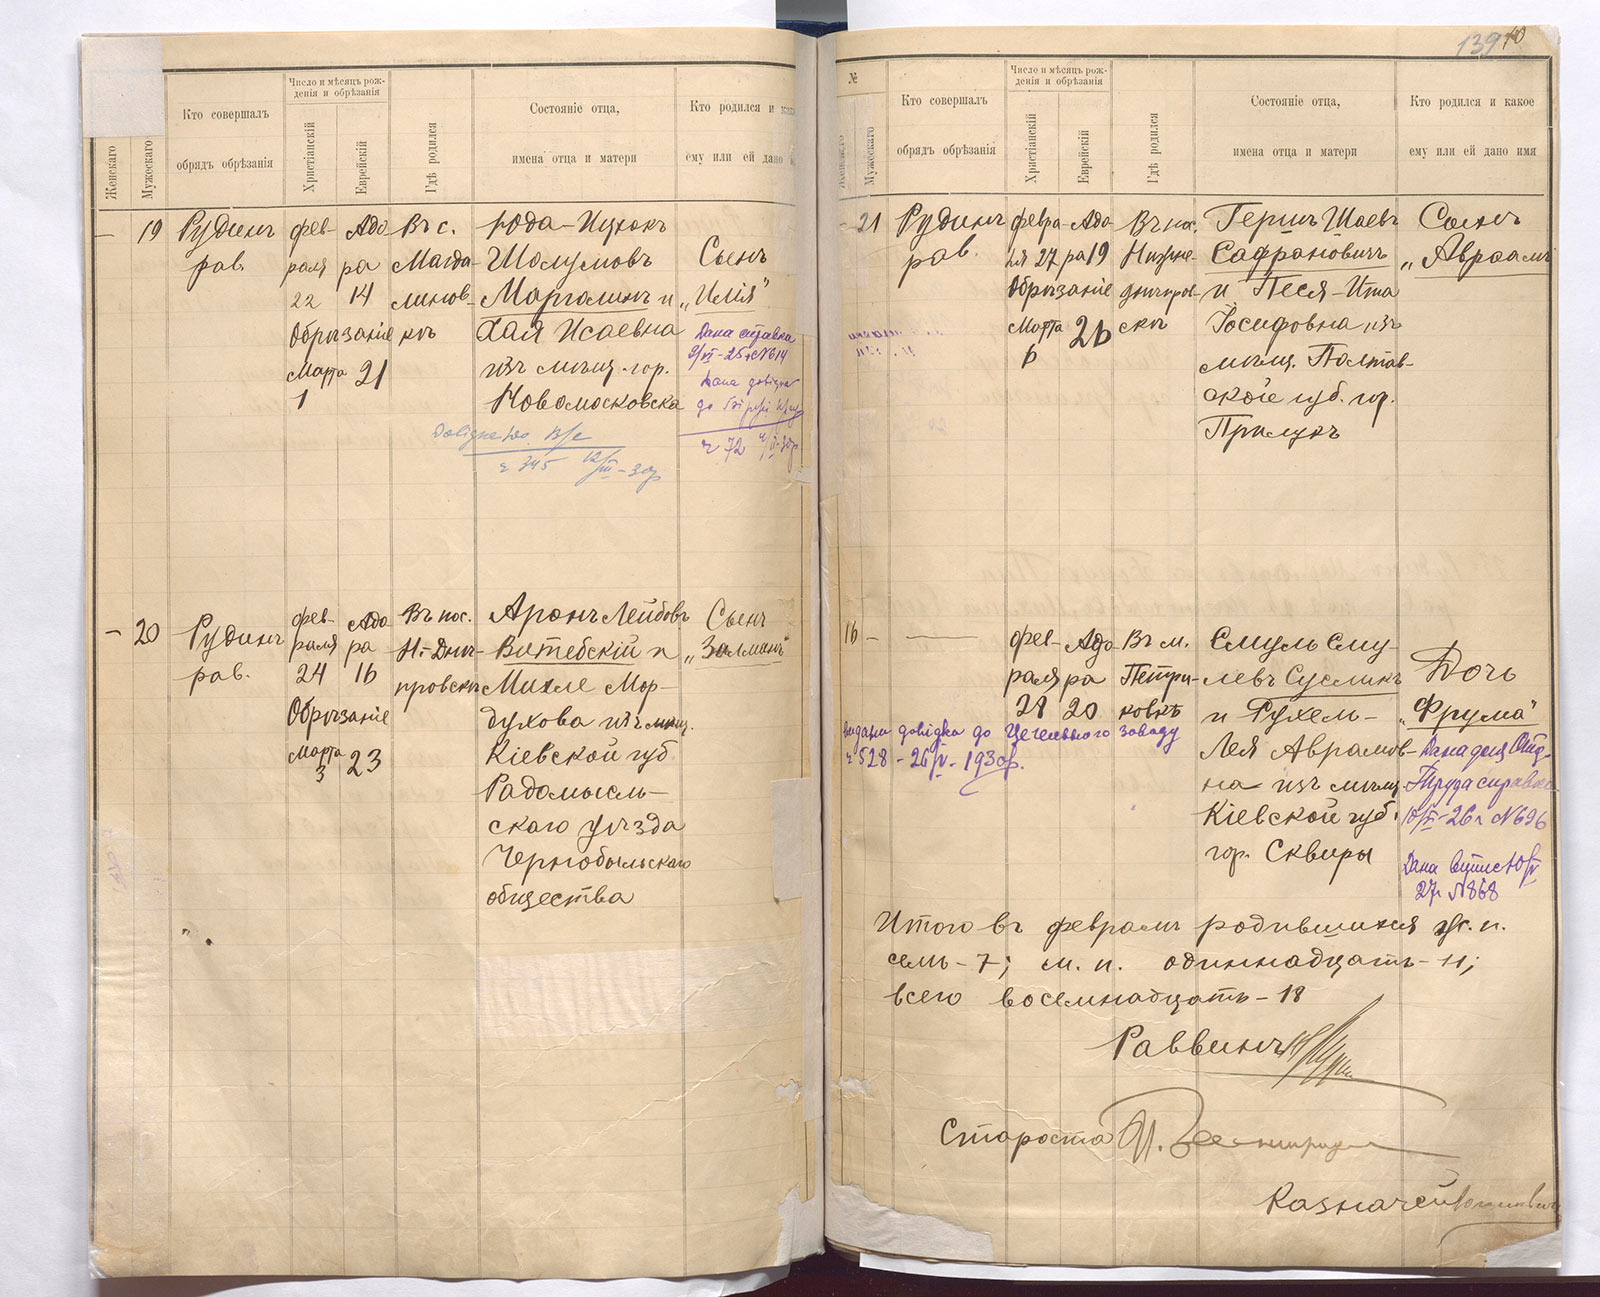 Женскаго
Мужескаго
Кто совершалъ
обрядъ обрѣзанія
Число и мѣсяцъ рож-
денія и обрѣзанія
Христіанскій
Еврейскій
Гдѣ родился
Состояніе отца,
имена отца и матери
Кто родился и
ему или ей дано
— 19
Рудинъ
рав.
фев-
раля
22
Обрѣзаніе
Марта
1
Адо
ра
14
21
Въ с.
Магда
линов-
кѣ
Юда-Ицхокъ
Шолумовъ
Марголинъ и
Хая Исаевна
изъ мѣщ. гор.
Новомосковска
Сынъ
„Илія"
Дана справка
9/VI-25 г. №614
Дана довідка
№ 72
№ 345 12/III-30р
— 20
Рудинъ
рав.
фев-
раля
24
Обрѣзаніе
марта
3
Адо
ра
16
23
Въ пос.
Н.-Днѣ-
провскѣ
Аронъ Лейбовъ
Витебскій и
Михле Мор-
духова изъ мѣщ.
Кіевской губ
Радомысль-
скаго уѣзда
Чернобыльскаго
общества
Сынъ
„Залманъ"
139 10
№
Мужескаго
Кто совершалъ
обрядъ обрѣзанія
Число и мѣсяцъ рож-
денія и обрѣзанія
Христіанскій
Еврейскій
Гдѣ родился
Состояніе отца,
имена отца и матери
Кто родился и какое
ему или ей дано имя
— 21
Рудинъ
рав.
февра-
ля 27
Обрѣзаніе
Марта
6
Адо-
ра 19
26
Въ пос.
Нижне-
днѣпров-
скѣ
Гершъ Шаевъ
Сафрановичъ
и Песя-Ита
Іосифовна изъ
мѣщ. Полтав-
ской губ. гор.
Прилукъ
Сынъ
„Авраамъ"
16 —
фев-
раля
28
Адо-
ра
20
Въ м.
Петри-
ковкѣ
Смуль Сму-
левъ Сусликъ
и Рухель-
Лея Аврамов-
на изъ мѣщ.
Кіевской губ.
гор. Сквиры
Дочь
„Фрума"
видана довідка до Цегельного заводу
№ 528 - 26/IV - 1930р.
Дана для
Труда справка
№696
Дана
27г №868
Итого въ февралѣ родившихся ж. п.
семь - 7; м. п. одиннадцать - 11;
всего восемнадцать - 18
Раввинъ
Староста
Казначей